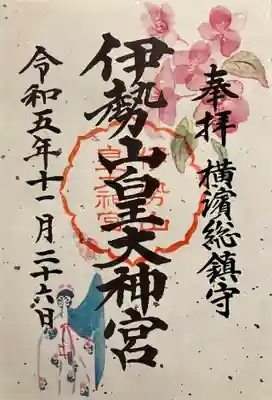 奉拝 横濱総鎮守
伊勢山皇大神宮
令和五年十一月二十六日
伊勢山
皇大神宮